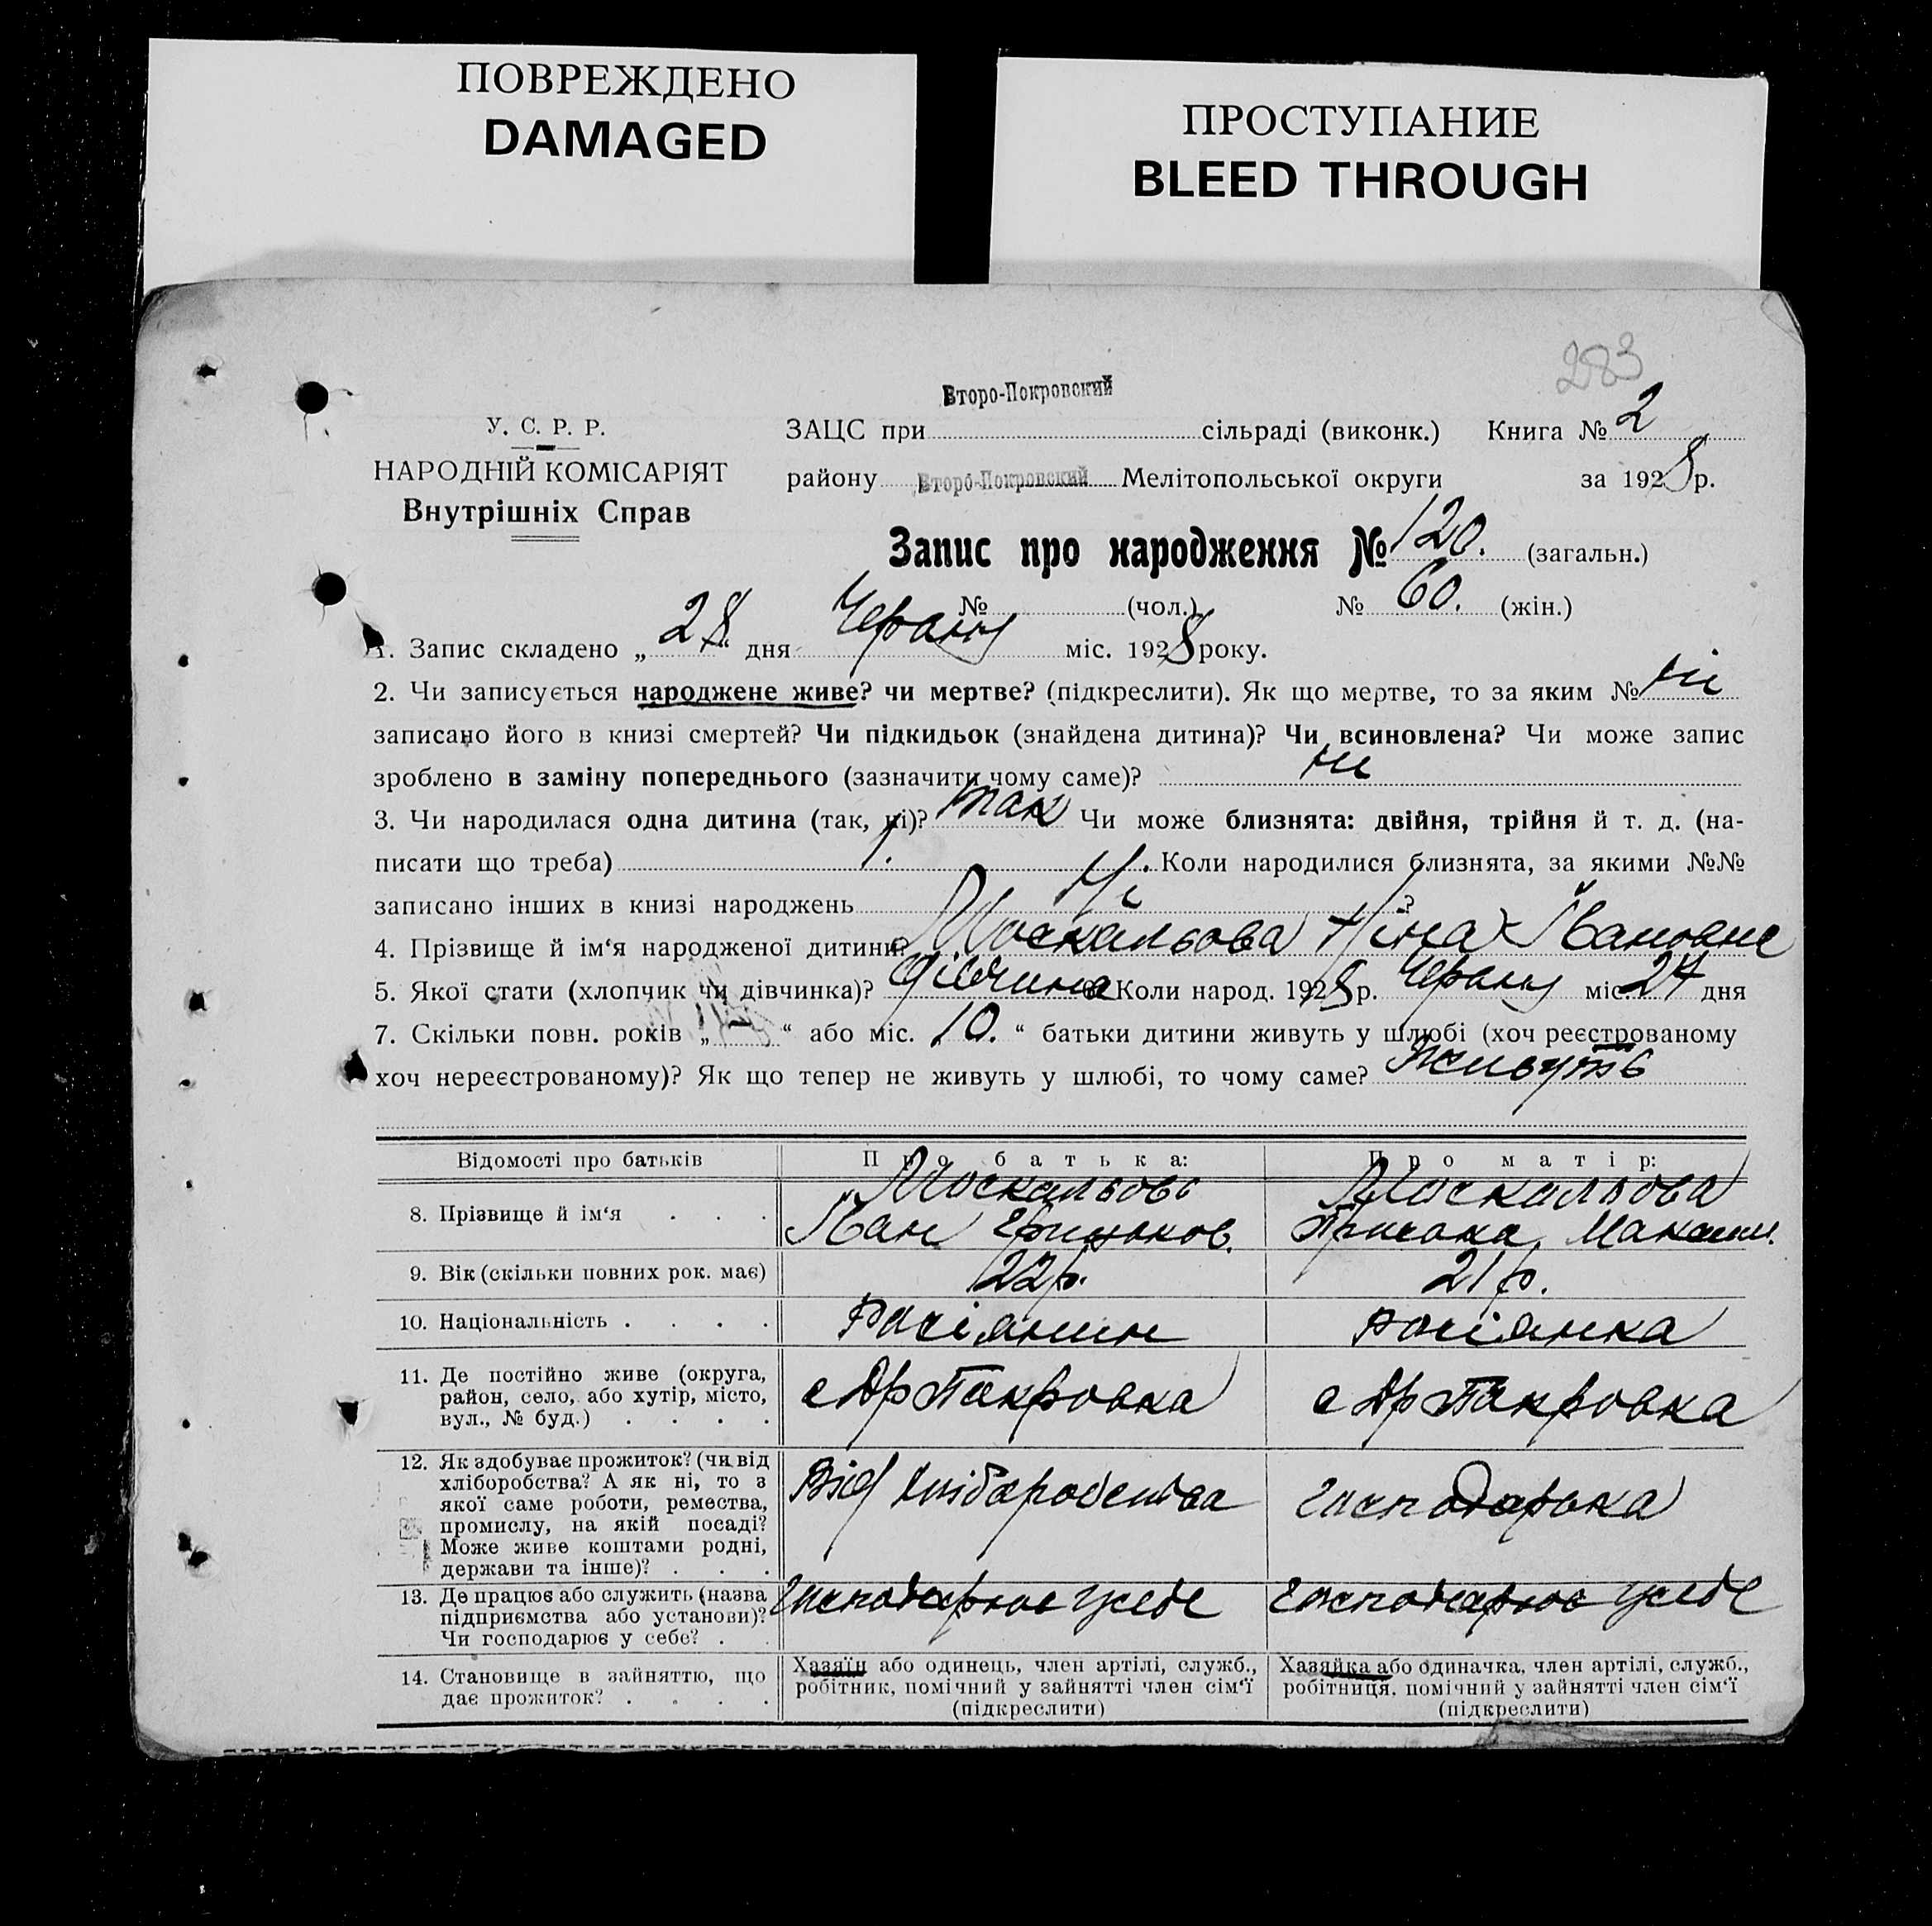 ПОВРЕЖДЕНО
DAMAGED
ПРОСТУПАНИЕ
BLEED THROUGH
283
Второ-Покровский
У. С. Р. Р.
НАРОДНІЙ КОМІСАРІЯТ
Внутрішніх Справ
ЗАЦС при сільраді (виконк.) Книга № 2
району Второ-Покровский Мелітопольської округи за 1928 р.
Запис про народження № 120. (загальн.)
№ (чол.) № 60. (жін.)
1. Запис складено „28“ дня Червня міс. 1928 року.
2. Чи записується народжене живе? чи мертве? (підкреслити). Як що мертве, то за яким № ні
записано його в книзі смертей? Чи підкидьок (знайдена дитина)? Чи всиновлена? Чи може запис
зроблено в заміну попереднього (зазначити чому саме)? ні
3. Чи народилася одна дитина (так, ні)? так Чи може близнята: двійня, трійня й т. д. (на-
писати що треба) 1. Коли народилися близнята, за якими №№
записано інших в книзі народжень Ні ?
4. Прізвище й ім‘я народженої дитини? Москальова Ніна Івановна
5. Якої стати (хлопчик чи дівчинка)? дівчина 6. Коли народ. 1928 р. Червня міс. 24 дня
7. Скільки повн. років „ “ або міс. „10.“ батьки дитини живуть у шлюбі (хоч реєстрованому
хоч нереєстрованому)? Як що тепер не живуть у шлюбі, то чому саме? Живуть
Відомості про батьків
Про батька:
Про матір:
8. Прізвище й ім‘я . . .
Москальов
Іван
Москальова
Максим.
9. Вік (скільки повних рок. має)
22 р.
21 р.
10. Національність . . . .
Росіянин
росіянка
11. Де постійно живе (округа,
район, село, або хутір, місто,
вул., № буд.) . . . .
с Др Покровка
с Др Покровка
12. Як здобуває прожиток? (чи від
хліборобства? А як ні, то з
якої саме роботи, ремества,
промислу, на якій посаді?
Може живе коштами родні,
держави та інше)? . . .
Від хліборобства
господарька
13. Де працює або служить (назва
підприємства або установи)?
Чи господарює у себе? . .
господарює усебе
господарює усебе
14. Становище в зайняттю, що
дає прожиток? . . . .
Хазяїн або одинець, член артілі, служб.,
робітник, помічний у зайнятті член сім‘ї
(підкреслити)
Хазяйка або одиначка, член артілі, служб.,
робітниця, помічний у зайнятті член сім‘ї
(підкреслити)